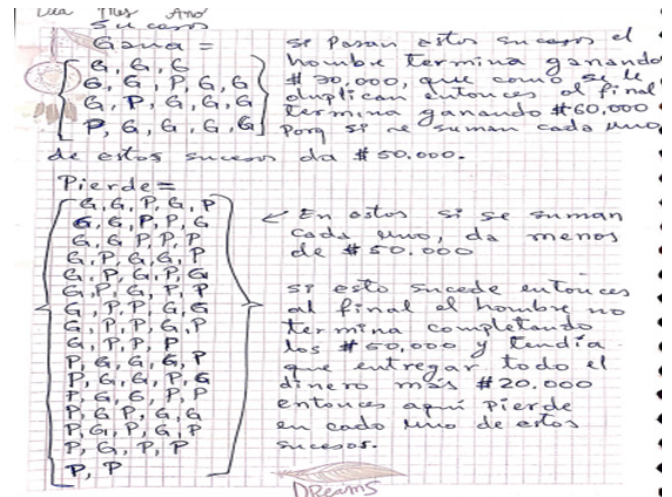 Dia Mes Año
Sucesos
Gana =
G, G, G
G, G, P, G, G
G, P, G, G, G
P, G, G, G, G
si pasan estos sucesos el
hombre termina ganando
$30,000, que como se le
duplican entonces al final
termina ganando $60,000
porq si se suman cada uno
de estos sucesos da $50.000.
Pierde =
G, G, P, G, P
G, G, P, P, G
G, G P, P, P
G, P, G, G, P
G, P, G, P, G
G, P, G, P, P
G, P, P, G, G
G, P, P, G, P
G, P, P, P
P, G, G, G, P
P, G, G, P, G
P, G, G, P, P
P, G, P, G, G
P, G, P, G, P
P, G, P, P
P, P
← En estos si se suman
cada uno, da menos
de $50.000
si esto sucede entonces
al final el hombre no
termina completando
los $50,000 y tendía
que entregar todo el
dinero más $20.000
entonces aquí pierde
en cado uno de estos
sucesos.
DReamS